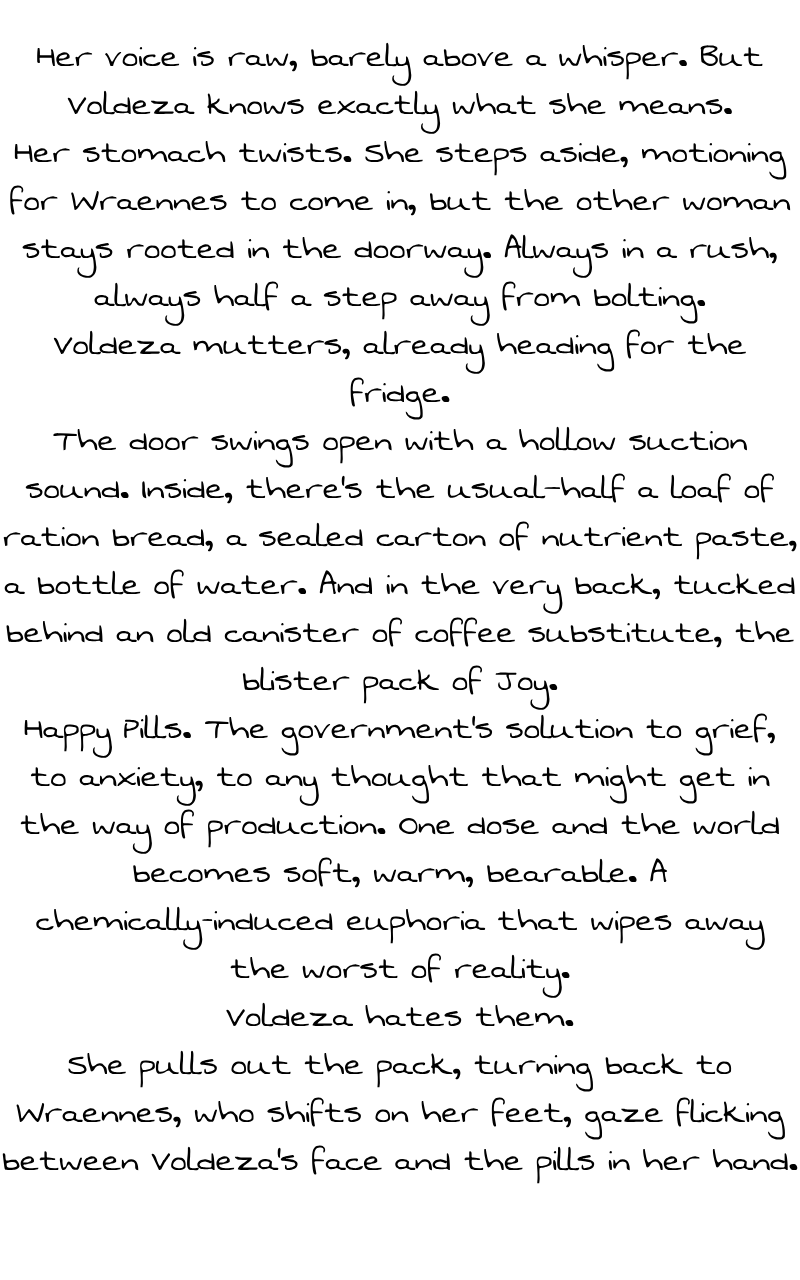 Her voice is raw, barely above a whisper. But
Voldeza knows exactly what she means.
Her stomach twists. She steps aside, motioning
for Wraennes to come in, but the other woman
stays rooted in the doorway. Always in a rush,
always half a step away from bolting.
Voldeza mutters, already heading for the
fridge.
The door swings open with a hollow suction
sound. Inside, there's the usual—half a loaf of
ration bread, a sealed carton of nutrient paste,
a bottle of water. And in the very back, tucked
behind an old canister of coffee substitute, the
blister pack of Joy.
Happy Pills. The government's solution to grief,
to anxiety, to any thought that might get in
the way of production. One dose and the world
becomes soft, warm, bearable. A
chemically-induced euphoria that wipes away
the worst of reality.
Voldeza hates them.
She pulls out the pack, turning back to
Wraennes, who shifts on her feet, gaze flicking
between Voldeza's face and the pills in her hand.